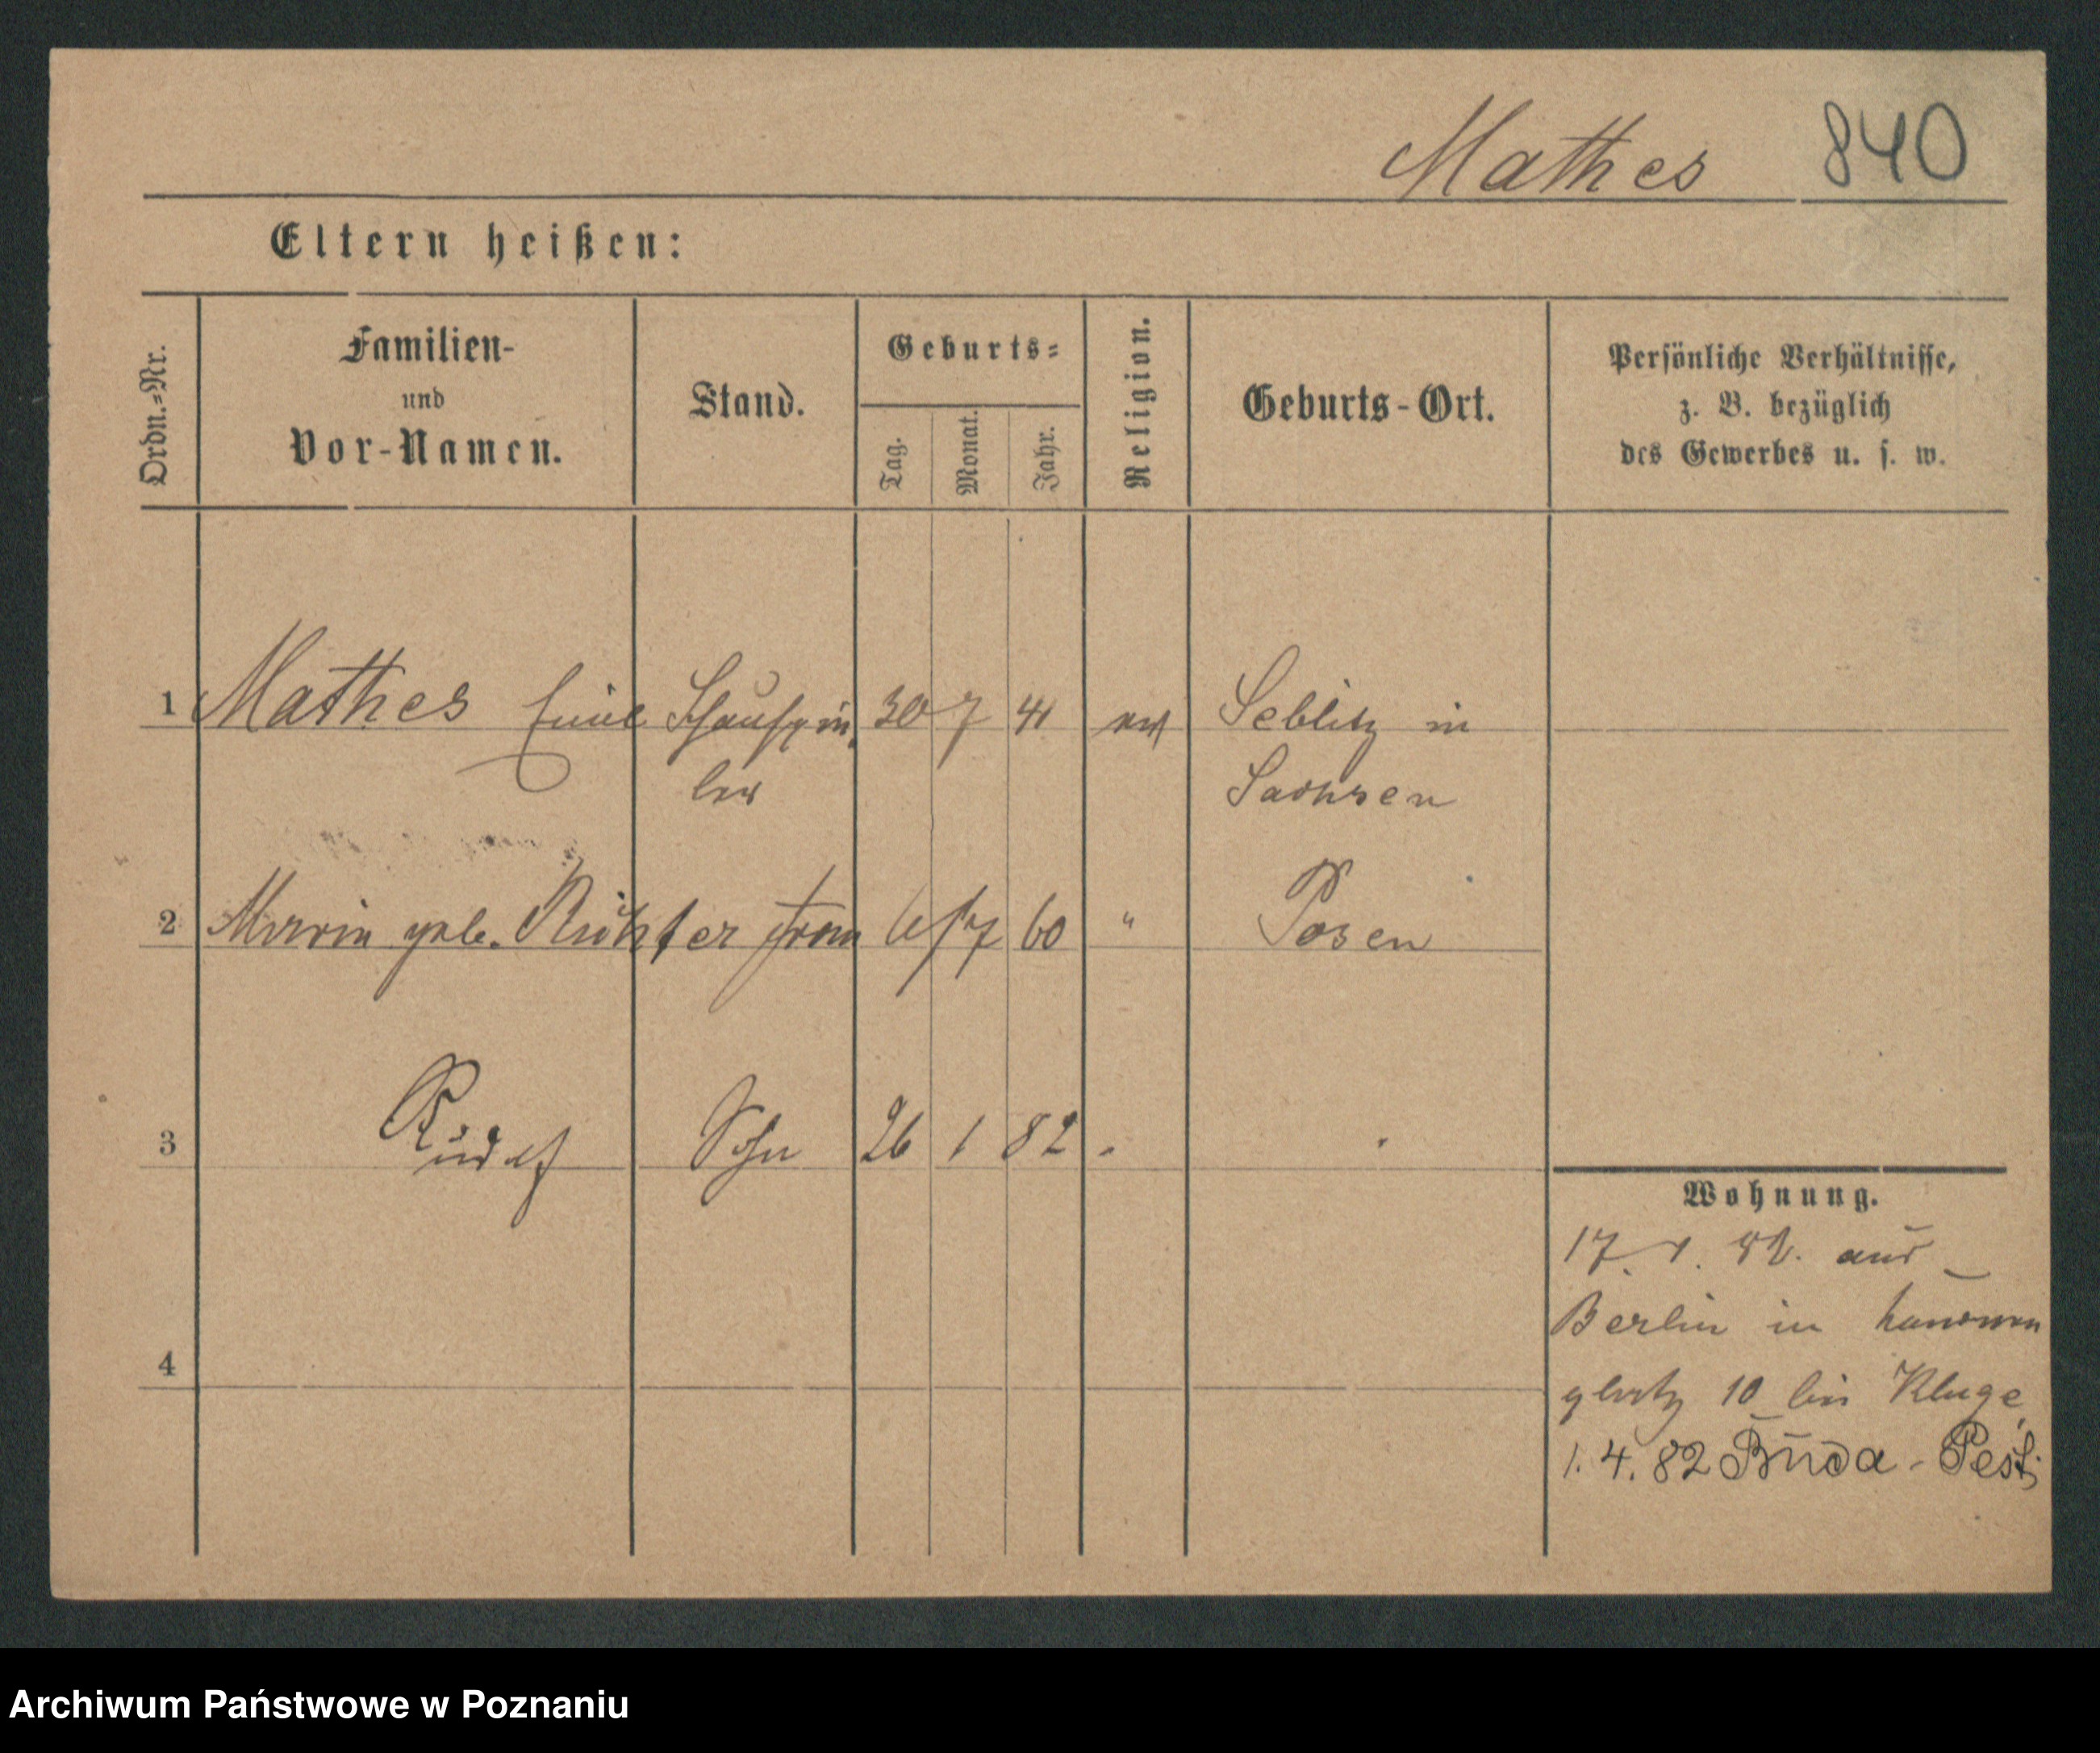 Mathes 840
Eltern heißen:
Ordn.=Nr. Familien- und Vor-Namen. Stand. Geburts= Tag. Monat. Jahr. Religion. Geburts-Ort. Persönliche Verhältnisse, z. B. bezüglich des Gewerbes u. s. w.
1 Mathes Emil Schauspie 30 7 41 Seblitz in
ler Sachsen
2 Maria geb. Richter Frau 6/7 60 " Posen
3 Rudolf Sohn 26 1 82 "
Wohnung.
17. 1. 82. aus
Berlin in Kanonen
platz 10 bei Kluge
4
1. 4. 82 Buda-Pest
Archiwum Państwowe w Poznaniu